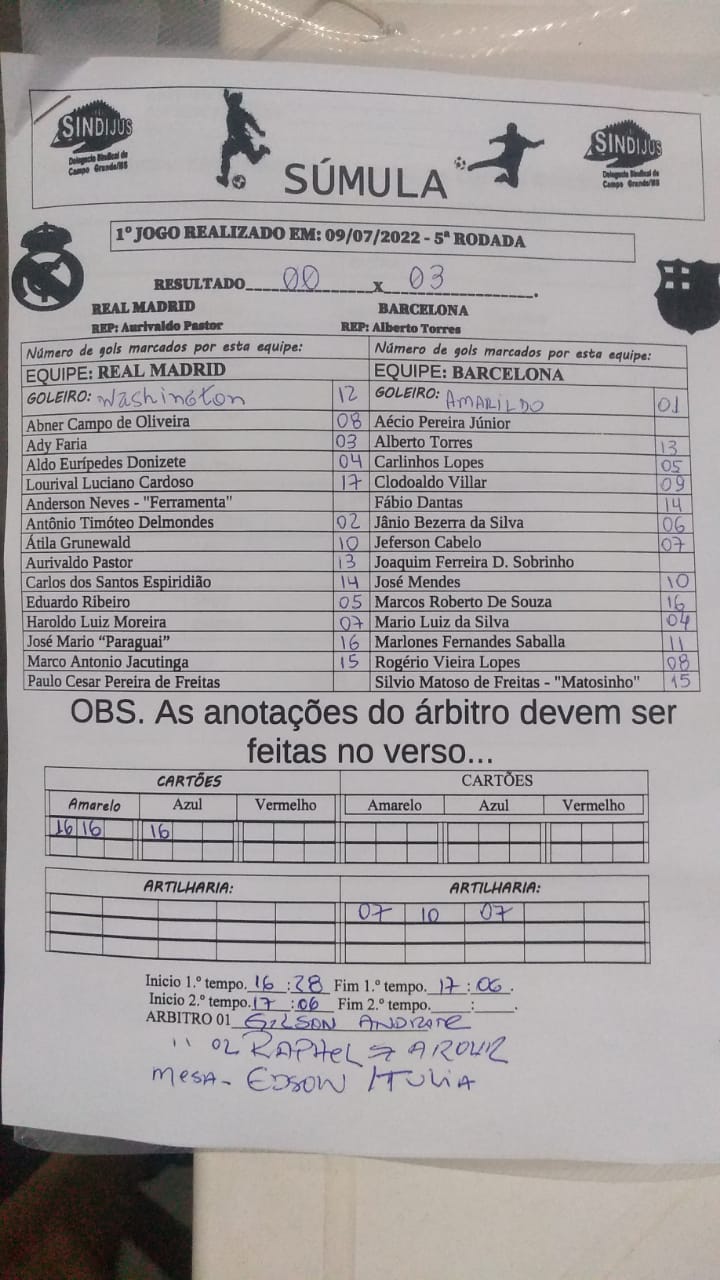 SINDIJUS
Delegacia Sindical de
Campo Grande/MS
SÚMULA
SINDIJUS
Delegacia Sindical de
Campo Grande/MS
1º JOGO REALIZADO EM: 09/07/2022 - 5ª RODADA
RESULTADO 00 X 03.
REAL MADRID BARCELONA
REP: Aurivaldo Pastor REP: Alberto Torres
Número de gols marcados por esta equipe: Número de gols marcados por esta equipe:
EQUIPE: REAL MADRID EQUIPE: BARCELONA
GOLEIRO: Washington 12 GOLEIRO: AMARILDO 01
Abner Campo de Oliveira 08 Aécio Pereira Júnior
Ady Faria 03 Alberto Torres 13
Aldo Eurípedes Donizete 04 Carlinhos Lopes 05
Lourival Luciano Cardoso 17 Clodoaldo Villar 09
Anderson Neves - "Ferramenta" Fábio Dantas 14
Antônio Timóteo Delmondes 02 Jânio Bezerra da Silva 06
Átila Grunewald 10 Jeferson Cabelo 07
Aurivaldo Pastor 13 Joaquim Ferreira D. Sobrinho
Carlos dos Santos Espiridião 14 José Mendes 10
Eduardo Ribeiro 05 Marcos Roberto De Souza 16
Haroldo Luiz Moreira 07 Mario Luiz da Silva 04
José Mario “Paraguai” 16 Marlones Fernandes Saballa 11
Marco Antonio Jacutinga 15 Rogério Vieira Lopes 08
Paulo Cesar Pereira de Freitas Silvio Matoso de Freitas - "Matosinho" 15
OBS. As anotações do árbitro devem ser
feitas no verso...
CARTÕES CARTÕES
Amarelo Azul Vermelho Amarelo Azul Vermelho
16 16 16
ARTILHARIA: ARTILHARIA:
07 10 07
Inicio 1.º tempo. 16:28 Fim 1.º tempo. 17:06.
Inicio 2.º tempo. 17:06 Fim 2.º tempo. : .
ARBITRO 01 GILSON ANDRADE
" 02 RAPHEL
MESA - EDSON